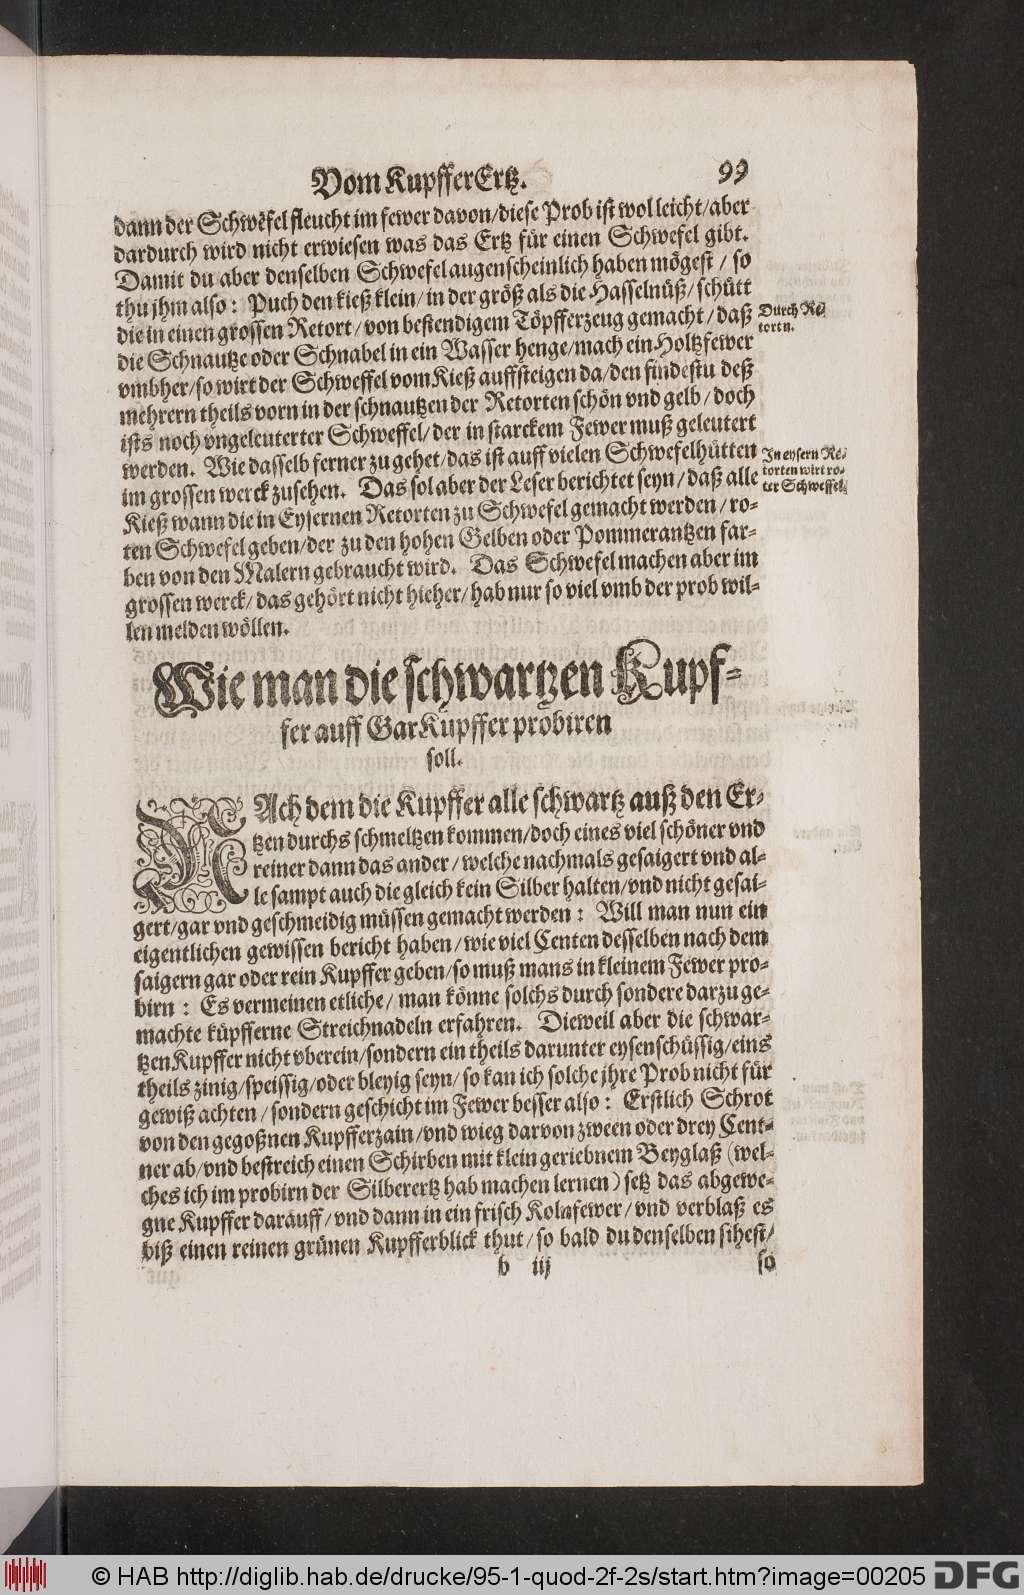 Vom KupfferErtz. 99
dann der Schwefel fleucht im fewer davon/diese Prob ist wol leicht/aber
dardurch wird nicht erwiesen was das Ertz für einen Schwefel gibt.
Damit du aber denselben Schwefel augenscheinlich haben mögest / so
thu jhm also: Puch den kieß klein/in der größ als die Hasselnüß/schütt
die in einen grossen Retort/von bestendigem Töpfferzeug gemacht/daß
Durch Re-
tortn.
die Schnautze oder Schnabel in ein Wasser henge/mach ein Holtzfewer
vmbher/so wirt der Schweffel vom Kieß auffsteigen da/den findestu deß
mehrern theils vorn in der schnautzen der Retorten schön vnd gelb/doch
ists noch vngeleuterter Schweffel/der in starckem Fewer muß geleutert
werden. Wie dasselb ferner zu gehet/das ist auff vielen Schwefelhütten
im grossen werck zusehen. Das sol aber der Leser berichtet seyn/daß alle
In eysern Re-
torten wirt ro-
ter Schweffel.
Kieß wann die in Eysernen Retorten zu Schwefel gemacht werden/ro-
ten Schwefel geben/der zu den hohen Gelben oder Pommerantzen far-
ben von den Malern gebraucht wird. Das Schwefel machen aber im
grossen werck/das gehört nicht hieher/hab nur so viel vmb der prob wil-
len melden wöllen.
Wie man die schwartzen Kupf-
fer auff GarKupffer probiren
soll.
NAch dem die Kupffer alle schwartz auß den Er-
tzen durchs schmeltzen kommen/doch eines viel schöner vnd
reiner dann das ander/welche nachmals gesaigert vnd al-
le sampt auch die gleich kein Silber halten/vnd nicht gesai-
gert/gar vnd geschmeidig müssen gemacht werden: Will man nun ein
eigentlichen gewissen bericht haben/wie viel Centen desselben nach dem
saigern gar oder rein Kupffer geben/so muß mans in kleinem Fewer pro-
birn: Es vermeinen etliche/man könne solchs durch sondere darzu ge-
machte küpfferne Streichnadeln erfahren. Dieweil aber die schwar-
tzen Kupffer nicht vberein/sondern ein theils darunter eysenschüssig/eins
theils zinig/speissig/oder bleyig seyn/so kan ich solche jhre Prob nicht für
gewiß achten/sondern geschicht im Fewer besser also: Erstlich Schrot
von den gegoßnen Kupfferzain/vnd wieg darvon zween oder drey Cent-
ner ab/vnd bestreich einen Schirben mit klein geriebnem Beyglaß (wel-
ches ich im probirn der Silberertz hab machen lernen) setz das abgewe-
gne Kupffer darauff/vnd dann in ein frisch Kolnfewer/vnd verblaß es
biß einen reinen grünen Kupfferblick thut/so bald du denselben sihest/
b iij so
© HAB http://diglib.hab.de/drucke/95-1-quod-2f-2s/start.htm?image=00205 DFG